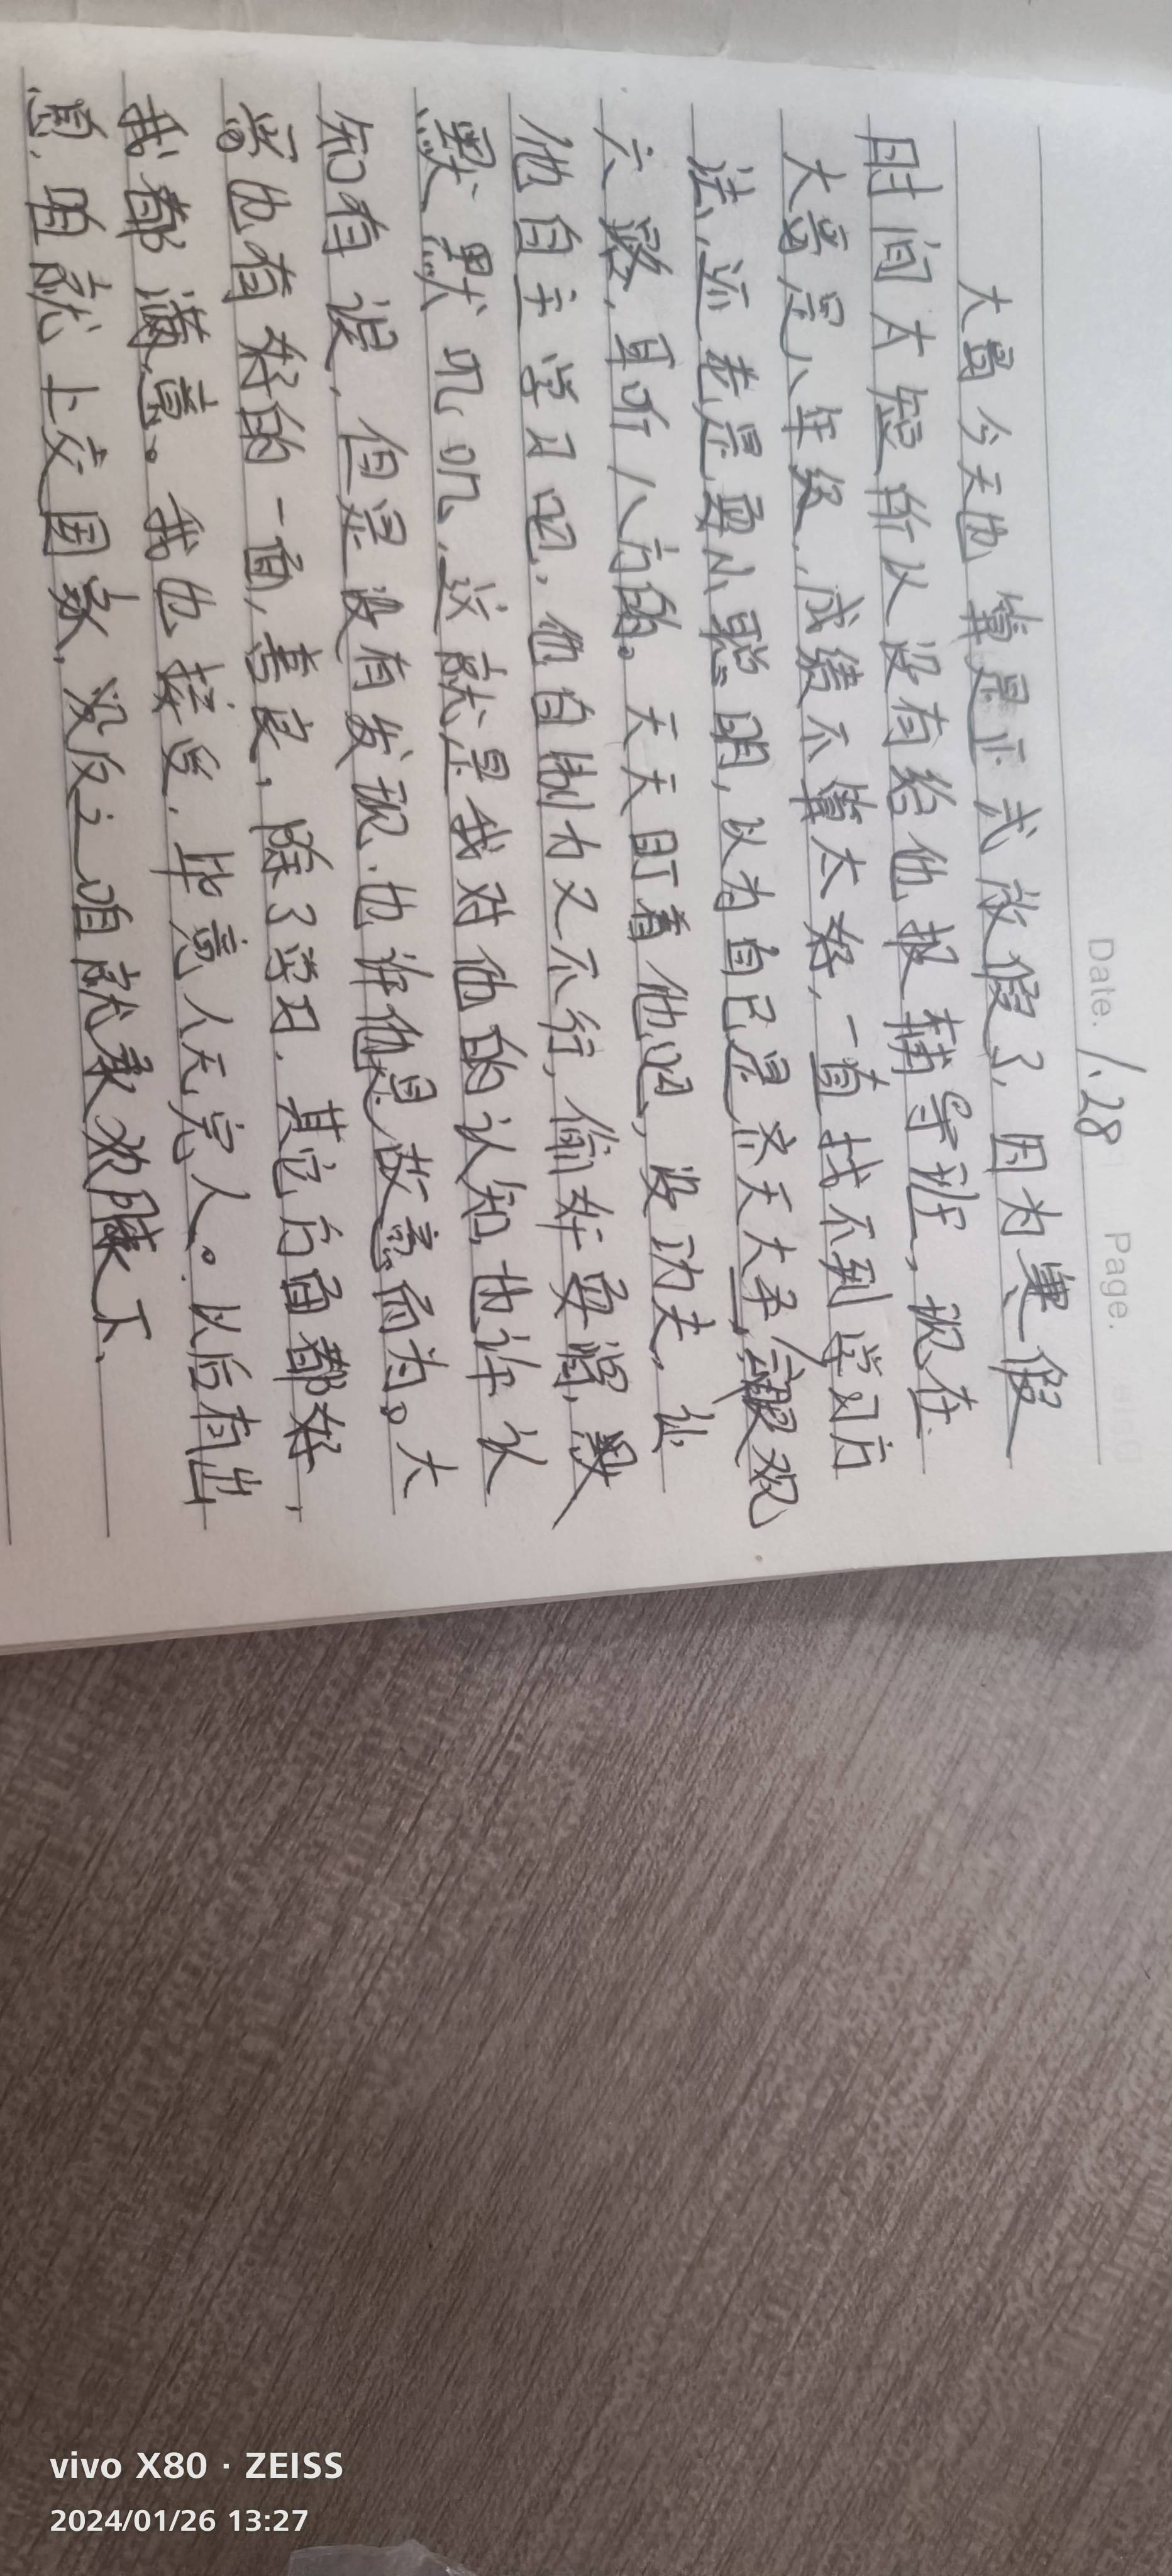 Date. 1.28 Page.
大哥今天也算是正式放假了，因为寒假
时间太短所以没有给他报辅导班，现在
大哥是八年级，成绩不算太好，一直找不到学习方
法，还老是耍小聪明，以为自己是齐天大圣，眼观
六路，耳听八方的。天天盯着他吧，没功夫，让
他自主学习吧，他自制力又不行，偷奸耍滑，
默默叽叽，这就是我对他的认知也许认
知有误，但是没有发现，也许他是故意而为。大
哥也有好的一面，善良，除了学习，其它方面都好，
我都满意。我也接受，毕竟人无完人。以后有出
息，咱就上交国家，没反之咱就承欢膝下。
vivo X80 · ZEISS
2024/01/26 13:27